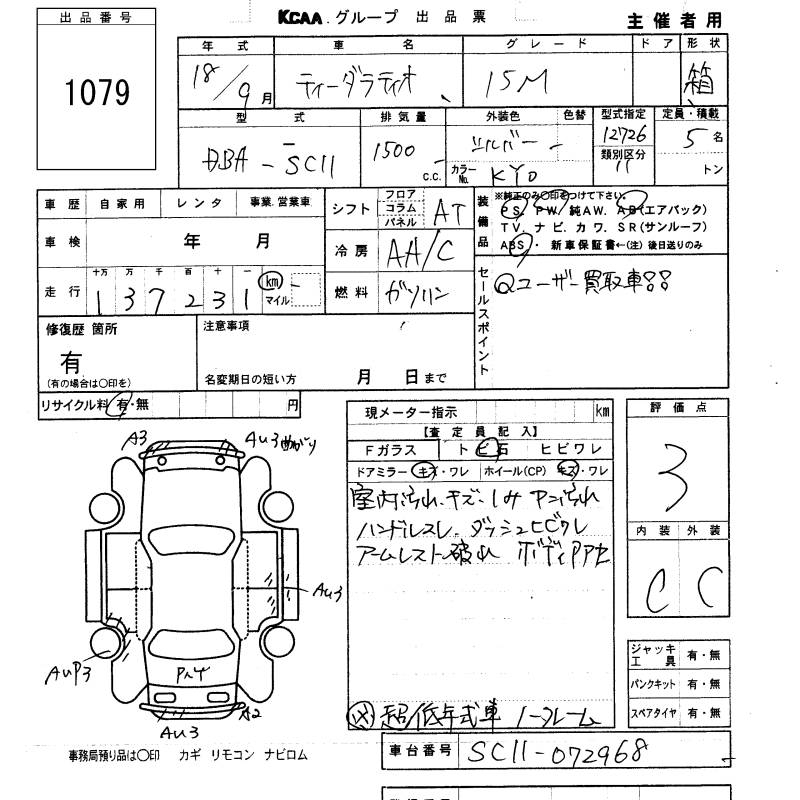 出品番号
1079
KCAA グループ 出品票
主催者用
年式 車名 グレード ドア 形状
18/9月 ティーダラティオ 15M 箱
型式 排気量 外装色 色替 型式指定 定員・積載
DBA-SC11 1500 C.C. シルバー 12726 5名
カラーNo. KY0 類別区分 11 トン
車歴 自家用 レンタ 事業.営業車
シフト フロア コラム パネル AT
車検 年 月
冷房 AA/C
走行 十万 万 千 百 十 一
137231 km マイル
燃料 ガソリン
装備品 ※純正のみ○印をつけて下さい。
PS. PW. 純AW. AB(エアバック)
TV. ナビ. カワ. SR(サンルーフ)
ABS・ 新車保証書←(注) 後日送りのみ
セールスポイント
Qユーザー買取車
修復歴 箇所
有
(有の場合は○印を)
注意事項
名変期日の短い方 月 日まで
リサイクル料 有・無 円
現メーター指示 km
【査定員記入】
Fガラス トビ石 ヒビワレ
ドアミラー キズ・ワレ ホイール(CP) キズ・ワレ
室内汚れ、キズ、シミ 汚れ
ハンドルスレ、ダッシュヒビワレ
アームレスト破れ
超低年式車 ノークレーム
評価点
3
内装 外装
C C
ジャッキ工具 有・無
パンクキット 有・無
スペアタイヤ 有・無
A3 AU3 曲がり
AU3
AUP3
A2
AU3
事務局預り品は○印 カギ リモコン ナビロム
車台番号 SC11-072968